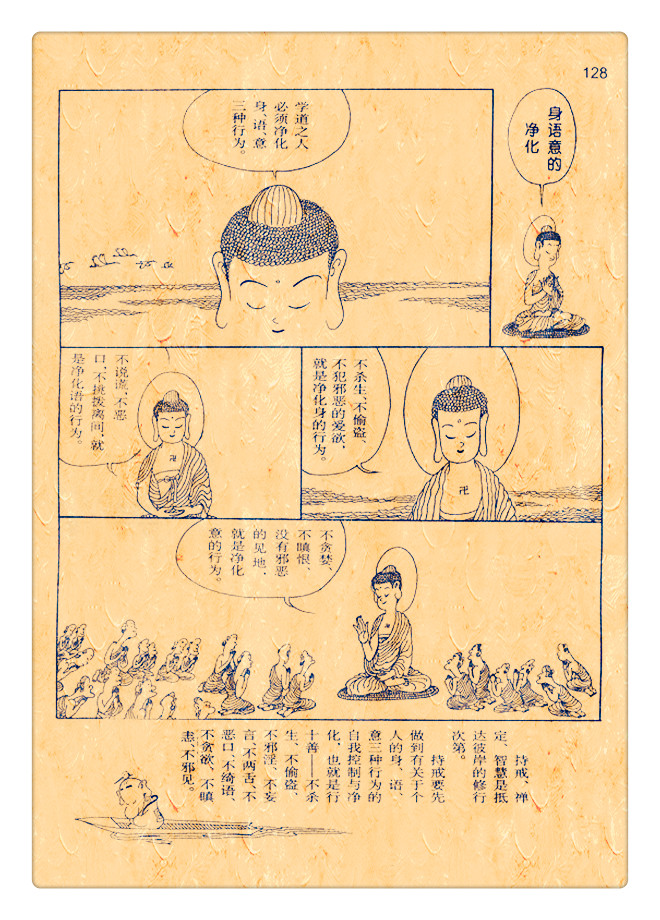 128
身语意的
净化
学道之人
必须净化
身、语、意
三种行为。
不杀生、不偷盗、
不犯邪恶的爱欲,
就是净化身的行为。
不说谎、不恶
口、不挑拨离间,就
是净化语的行为。
不贪婪、
不瞋恨、
没有邪恶
的见地、
就是净化
意的行为。
持戒、禅
定、智慧是抵
达彼岸的修行
次第。
持戒要先
做到有关于个
人的身、语、
意三种行为的
自我控制与净
化,也就是行
十善——不杀
生、不偷盗、
不邪淫、不妄
言、不两舌、不
恶口、不绮语、
不贪欲、不瞋
恚、不邪见。